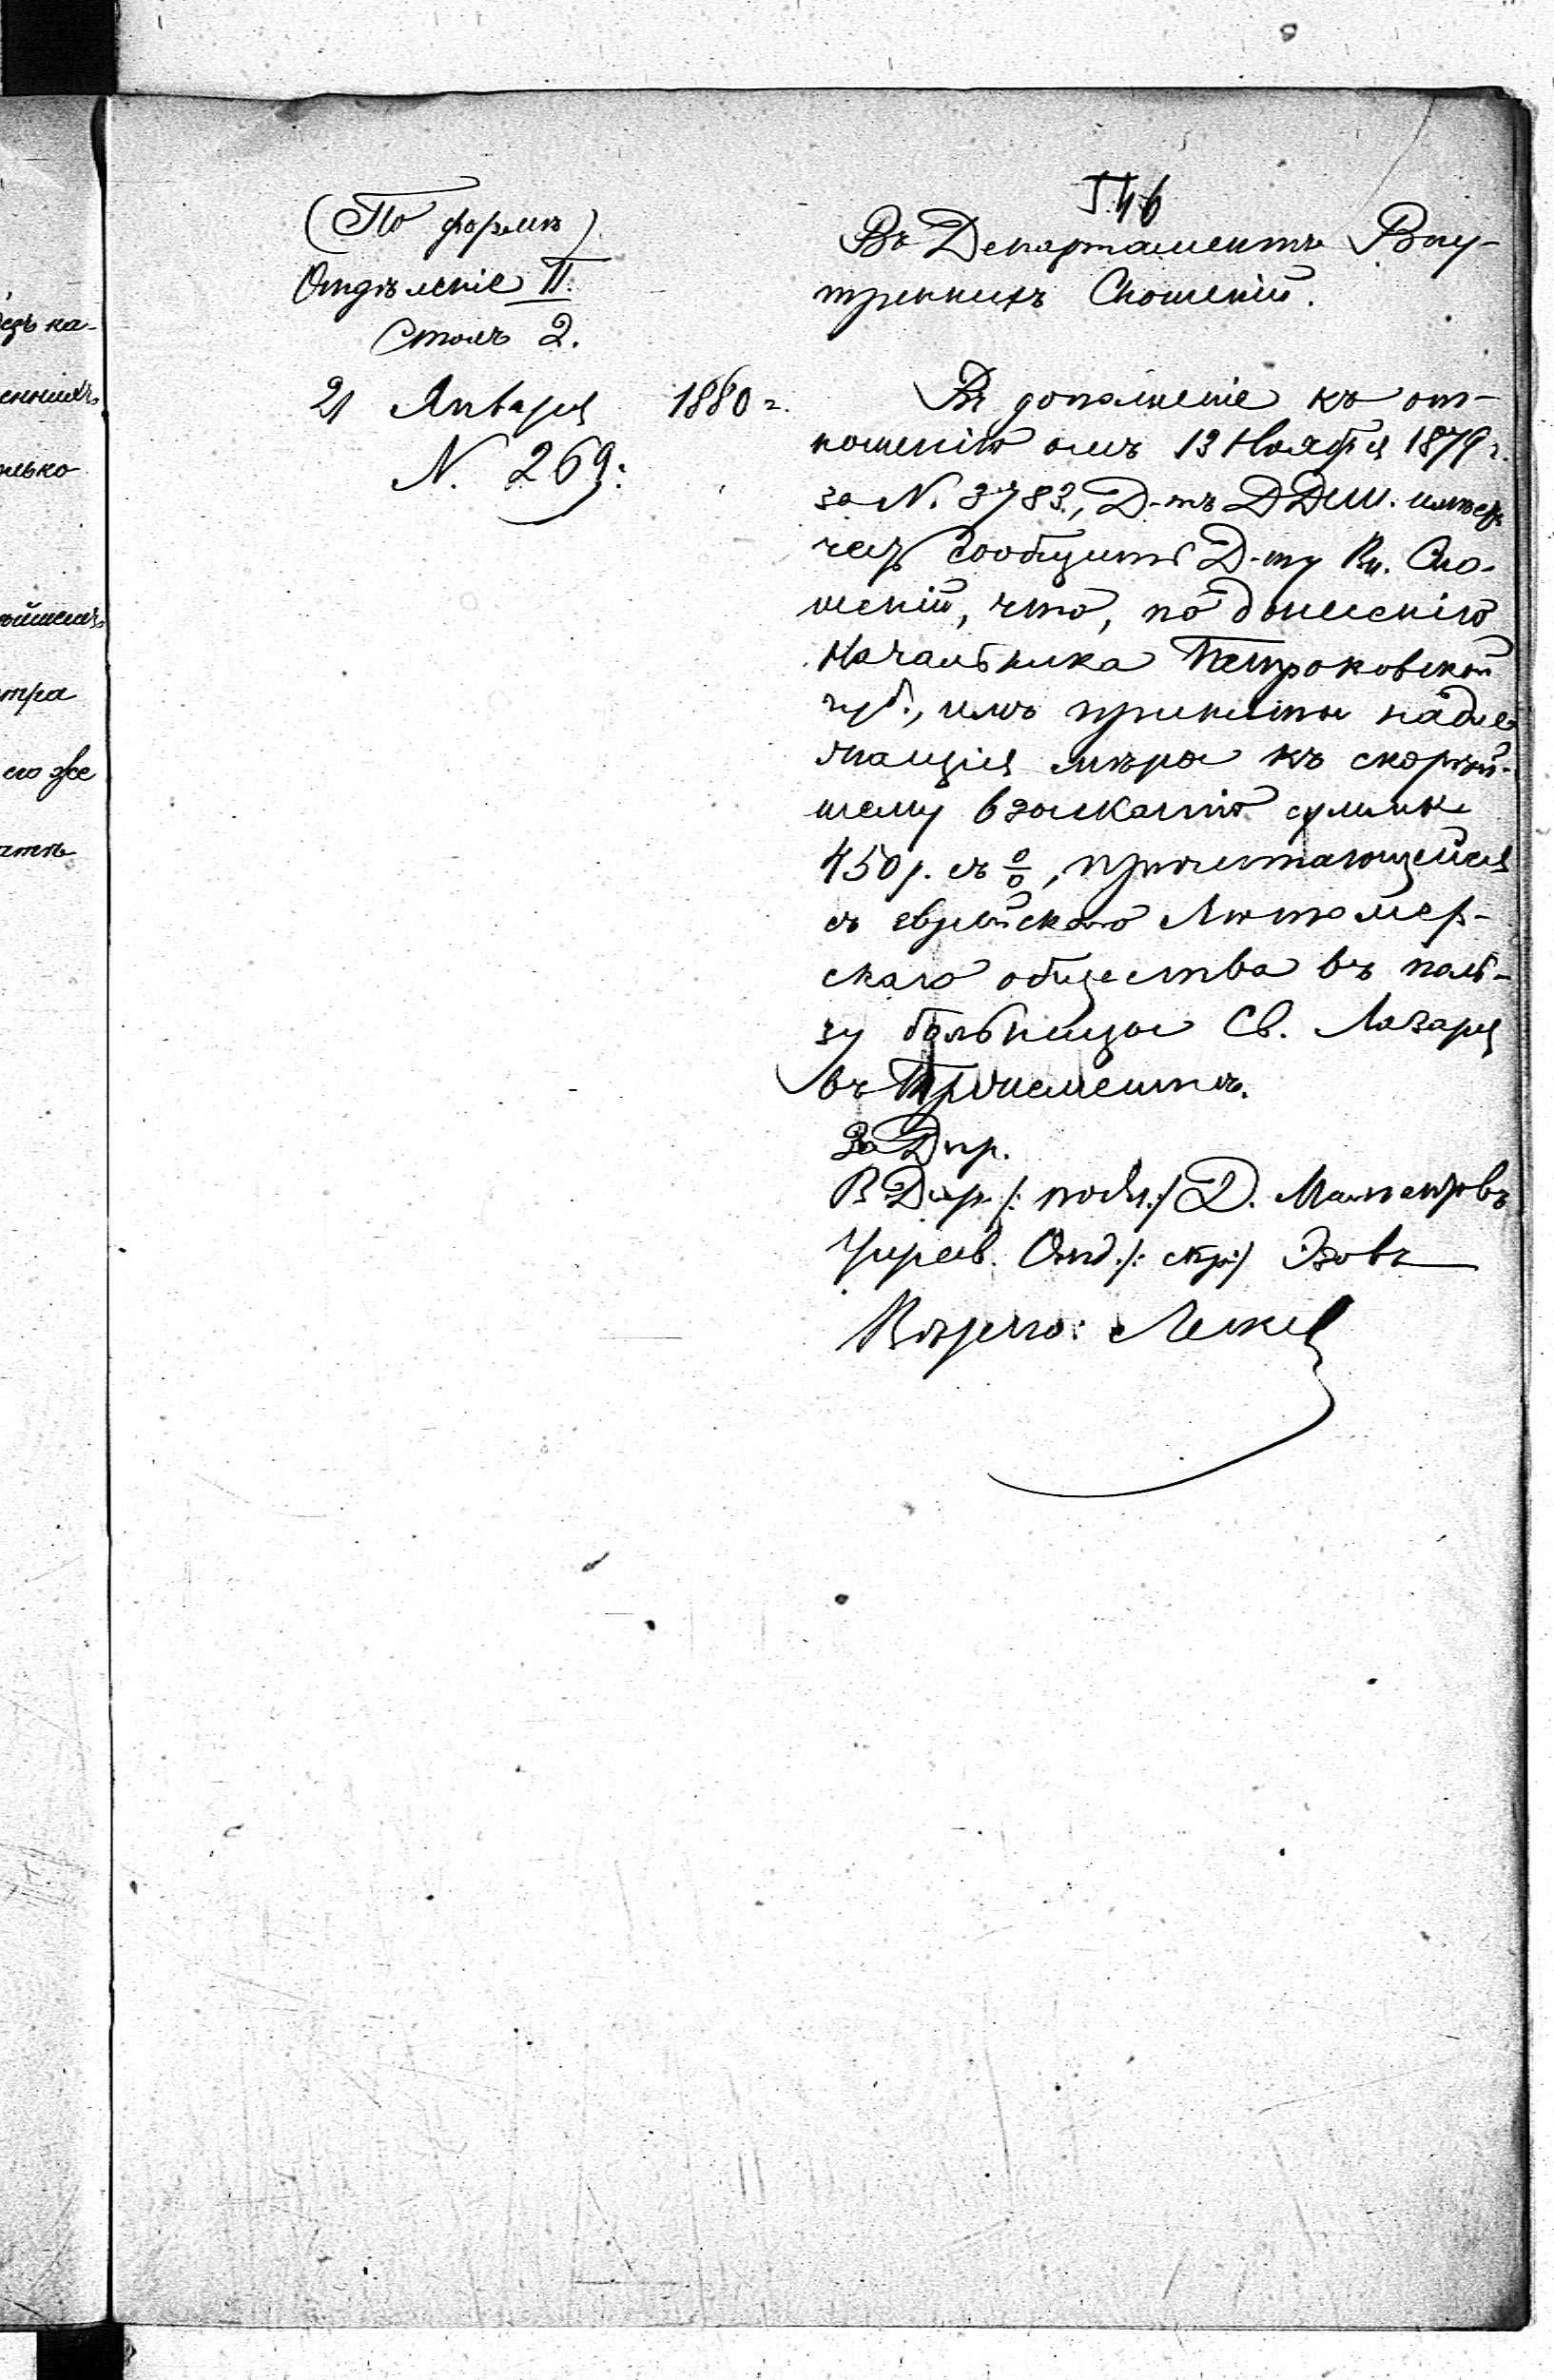 (По формѣ)
Отдѣленіе II.
Столъ 2.
21 Января 1880 г.
N. 269.
46
Въ Департаментъ Вну-
треннихъ Сношеній.
Въ дополненіе къ от-
ношенію отъ 13 Ноября 1879 г.
за N. 3783, Д-тъ ДДИИ. имѣетъ
честь сообщить Д-ту Вн. Сно-
шеній, что, по донесенію
Начальника Петроковской
губ., имъ приняты надле-
жащія мѣры къ скорѣй-
шему взысканію суммы
450 р. съ %, причитающейся
съ еврейского Лютомер-
скаго общества въ поль-
зу больницы Св. Лазаря
въ
За Дир.
В Дир. /: подп.:/ Д.
Управ. Отд. /: скр:/
Вѣрно:
ка-
лько
тра
его же